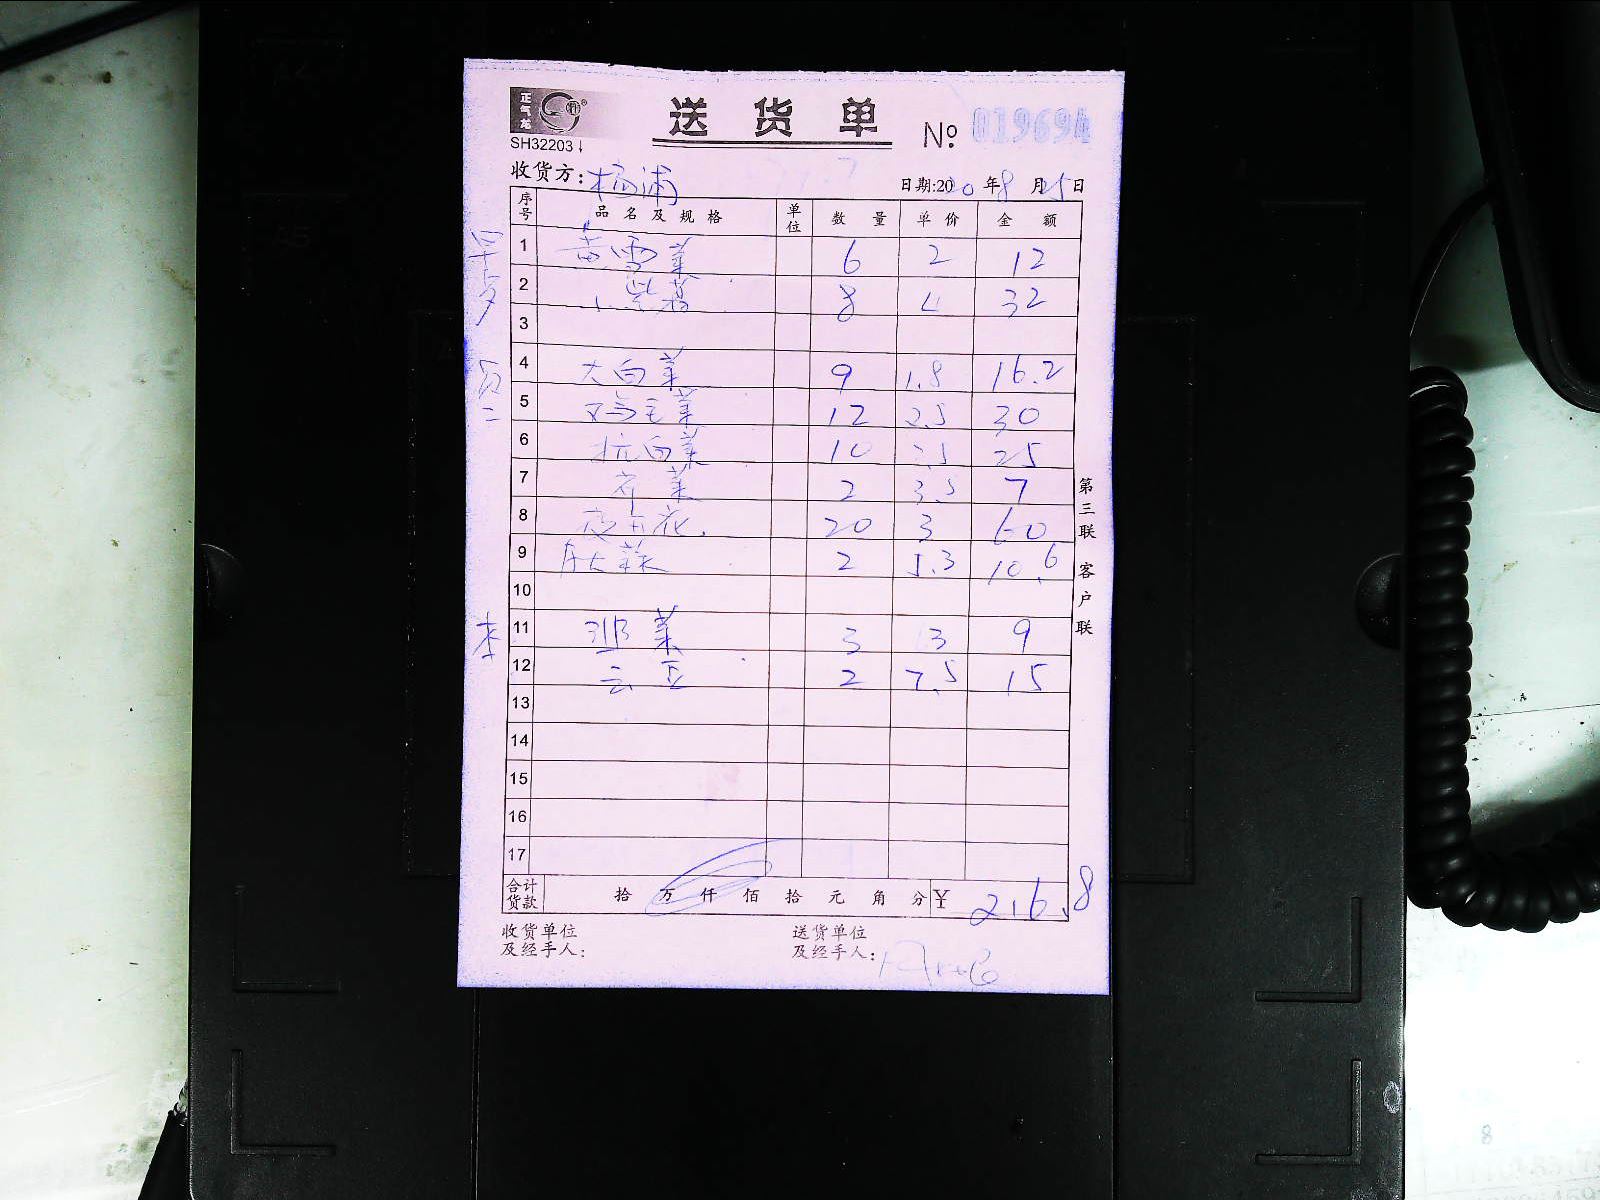 正气龙
SH32203
送货单
№ 019694
收货方: 杨浦
日期:2020年8月25日
序号 品名及规格 单位 数量 单价 金额
早
1 黄雪菜 6 2 12
2 小紫茄 8 4 32
3
4 大白菜 9 1.8 16.2
5 鸡毛菜 12 2.5 30
6 杭白菜 10 2.5 25
7 芹菜 2 3.5 7
8 20 3 60
9 2 5.3 10.6
10
11 3 3 9
12 云豆 2 7.5 15
李
13
14
15
16
17
第三联 客户联
合计货款 拾万仟佰拾元角分 ¥ 216.8
收货单位及经手人:
送货单位及经手人: